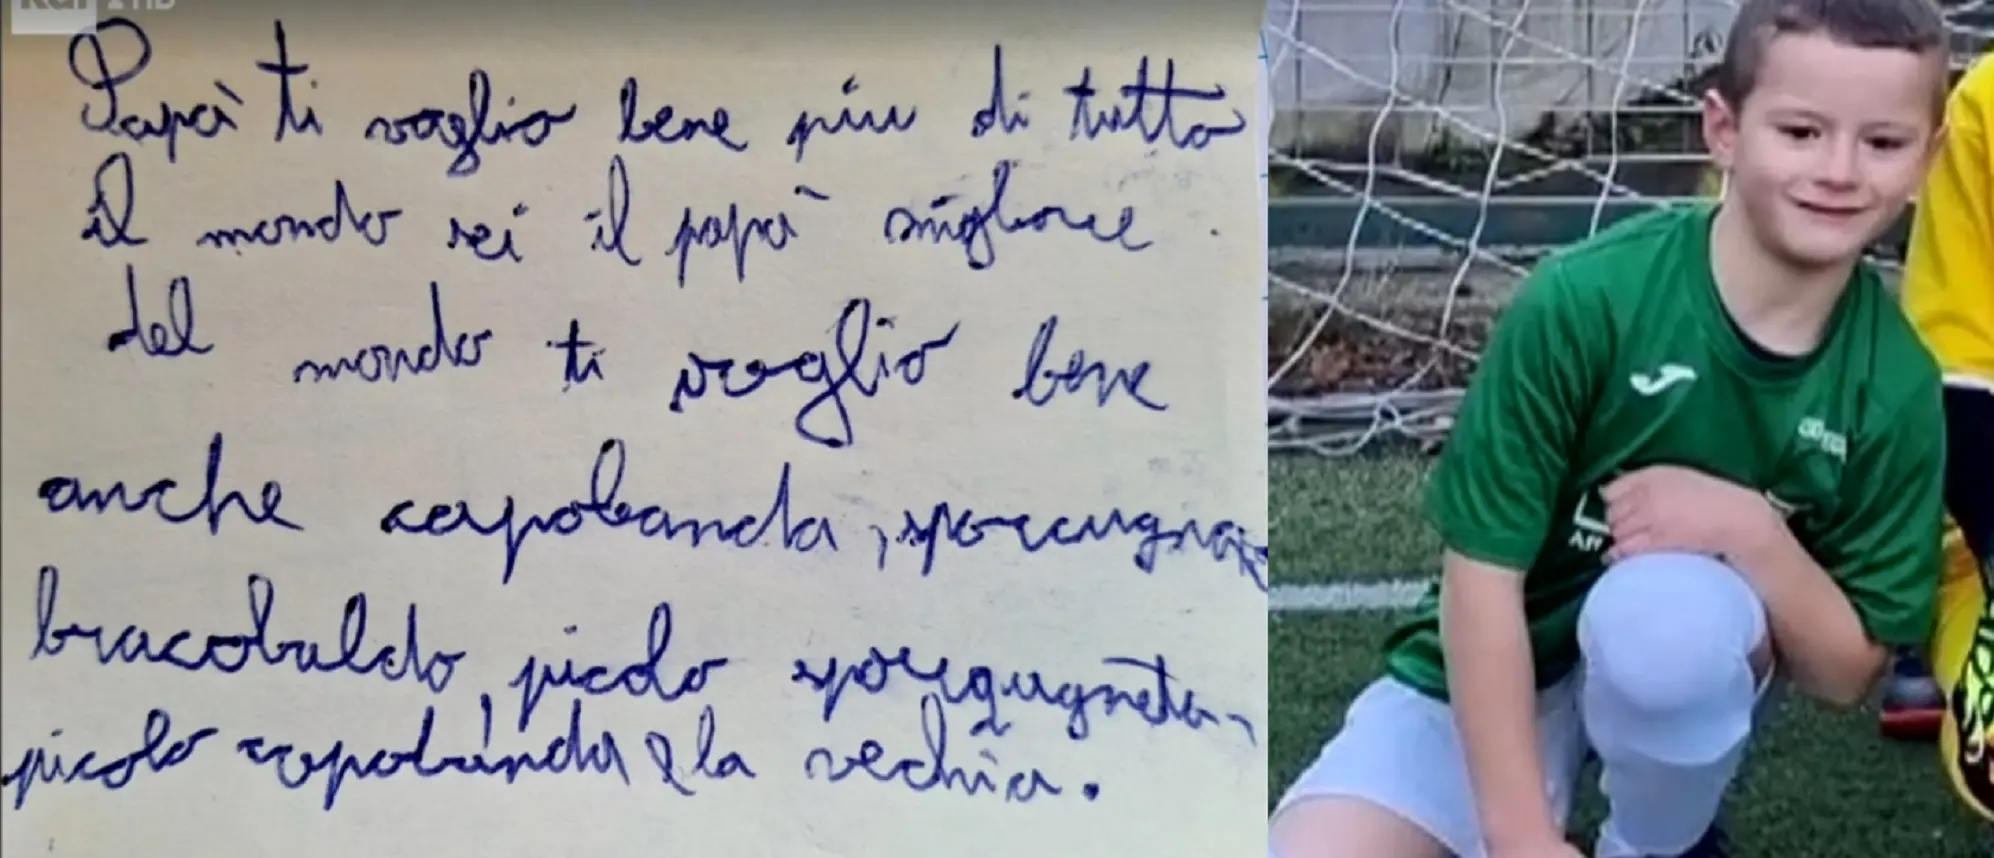 Rai 1 HD
Papà ti voglio bene più di tutto
il mondo sei il papà migliore
del mondo ti voglio bene
anche capobanda, sporcugna
bracobaldo, picolo sporcqugneta,
picolo capobanda e la vechia.